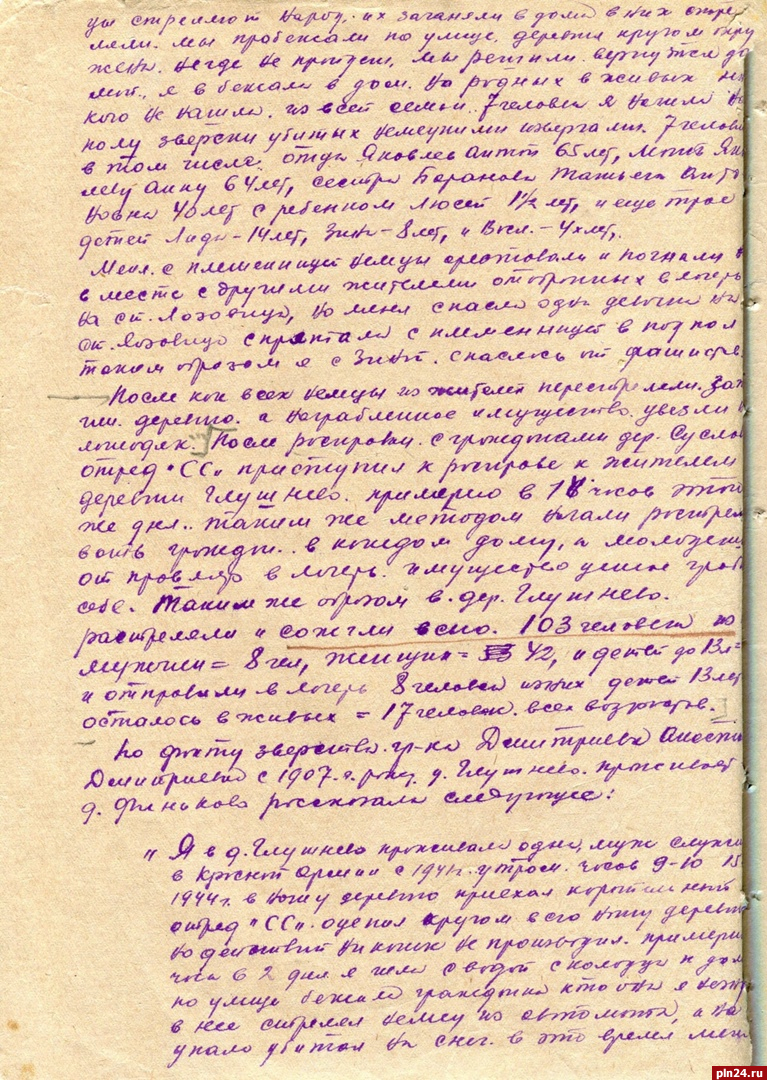 цы стреляют народ, их загоняли в дома в них стре
ляли. мы пробежали по улице, деревня кругом окру
жена. негде не пройдеш, мы решили вернутся до
мой, я в бежала в дом. но родных в живых ни
кого не нашла. из всей семьи 7 человек я нашла на
полу зверски убитых немецкими извергами. 7 челов
в том числе: отца Яковлев Антон 65 лет, мать Яко
леву Анну 64 лет, сестра Баранова Татьяна Анто
новна 40 лет с ребенком Люсей 1½ лет, и еще трое
детей Лида-14 лет, Зина-8 лет, и Вася-4х лет,
Меня с племянницей немцы арестовали и погнали
в месте с другими жителями отобранных в лагерь
на ст. Лозовица, но меня спасла одна девочка на
ст. Лозовица спрятала с племянницей в под пол
таким образом я с Зиной спаслось от фашистов.
После как всех немцы из жителей перестреляли. Заж
гли деревню. а награбленное имущество увезли н
лошадях. После росправы с гражданами дер. Сусло
отряд "СС" приступил к росправе к жителям
деревни Глушнево. примерно в 11 часов этого
же дня. таким же методом начали растрел
вать граждан. в каждом дому, а молодежь
от правляя в лагерь. имущество ценное граб
себе. Таким же образом в дер. Глушнево.
растреляли и сожгли всего. 103 человека из
мужчин = 8 чел, женщин = 42, и детей до 13 л=
и отправили в лагерь 8 человек из них детей 13 лет
осталось в живых = 17 человек. всех возростов.
По факту зверства гр-ка Дмитриева Анаста
Дмитриевна с 1907 г. рожд. д. Глушнево. проживает
д. Финьково россказала следующее:
" Я в д. Глушнево проживала одна, муж служил
в Красной Армии с 1941 г. утром. часов 9-10 15
1944 г. в нашу деревню приехал карательный
отряд "СС". оцепил кругом всю нашу деревню
но действий ни каких не производил. пример
часа в 2 дня я шла с водой с колодца к дом
по улице бежала гражданка кто она я не
в нее стрелял немец из автомата, а на
упала убитая на снег. в это время мен
pln24.ru